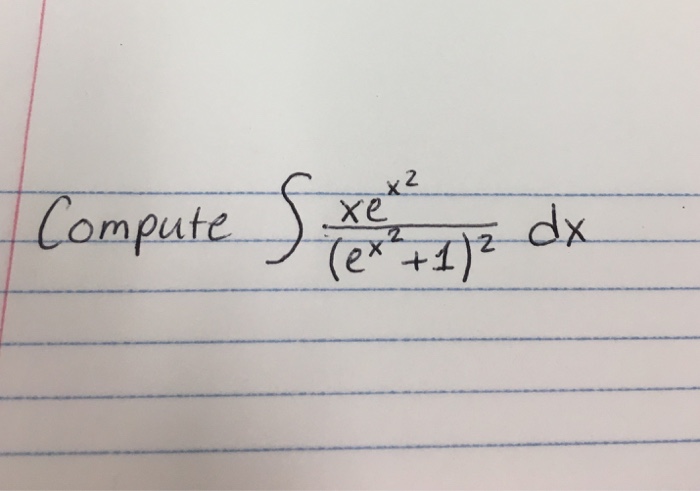 Compute ∫ xe^{x^2} / (e^{x^2}+1)^2 dx